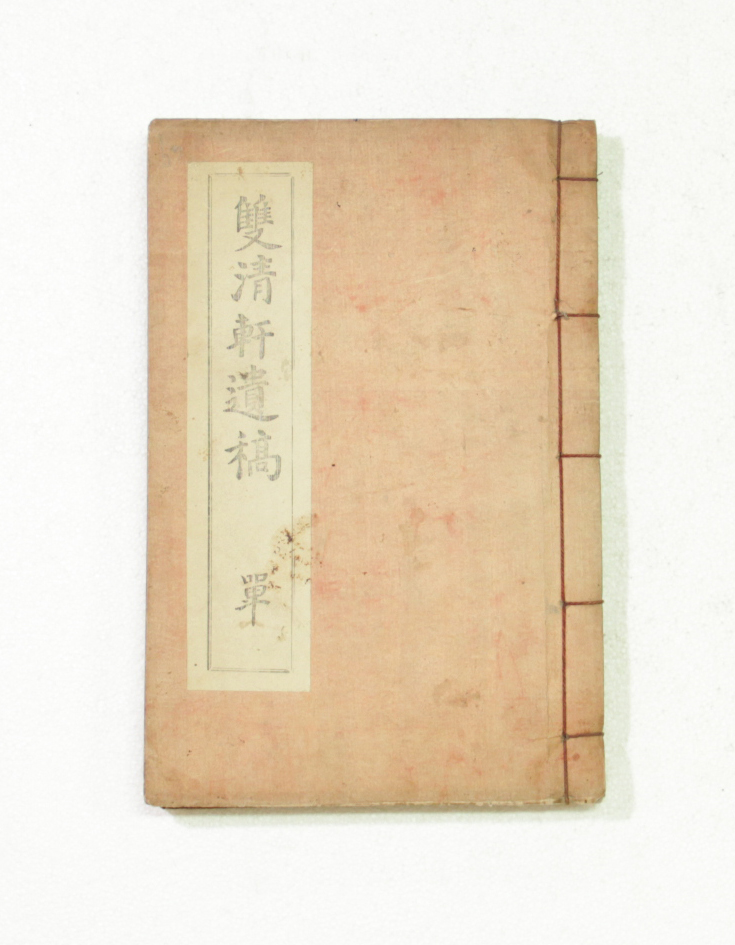 雙清軒遺稿 單